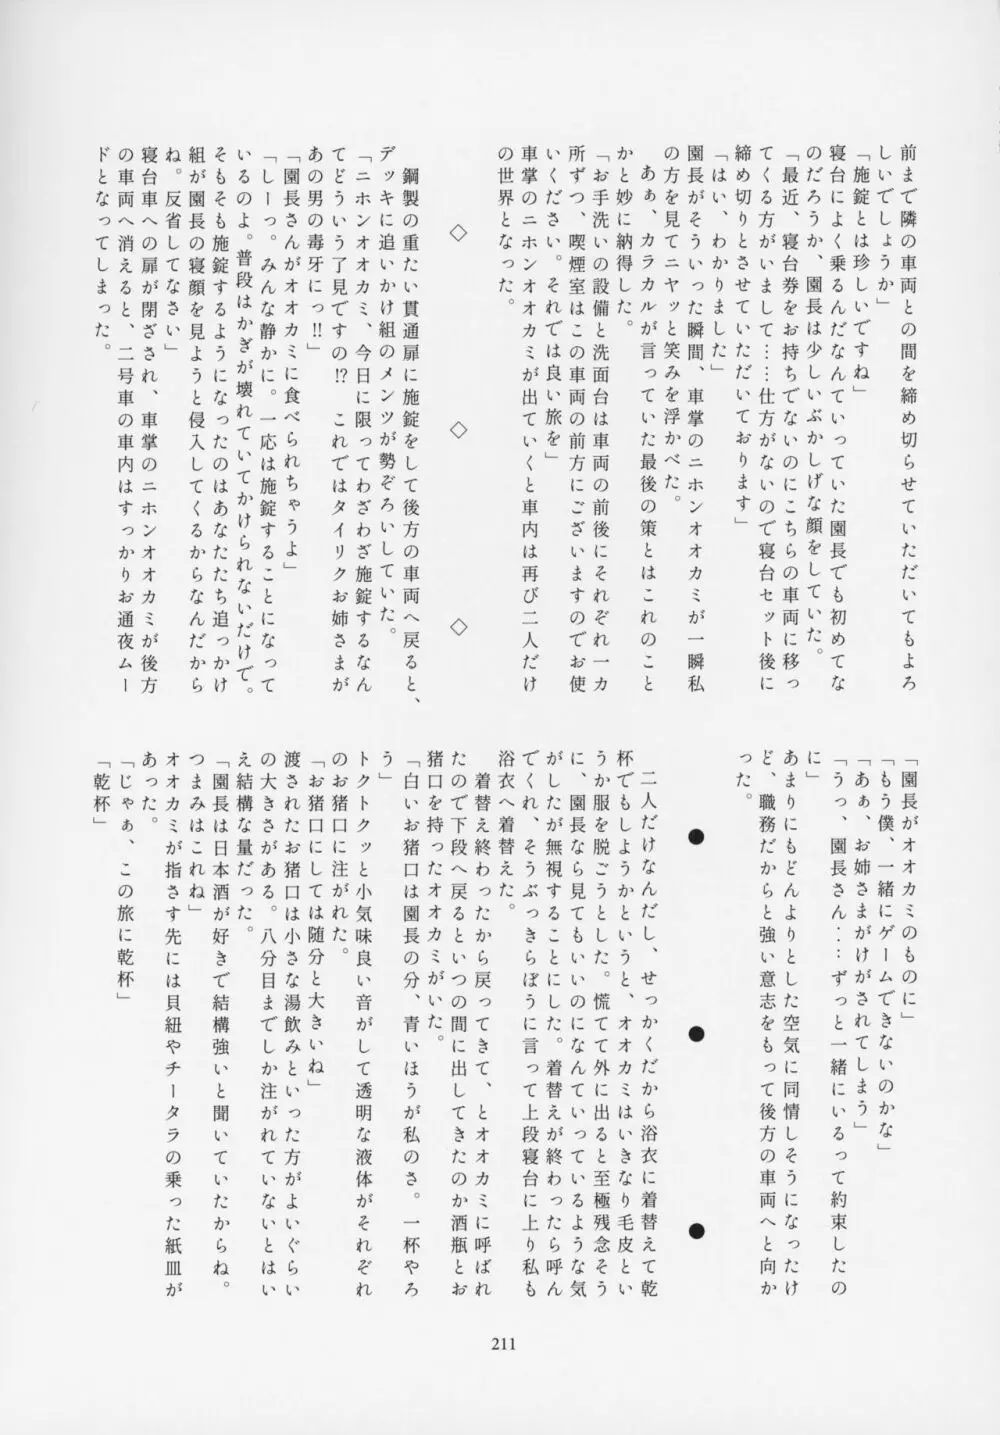 前まで隣の車両との間を締め切らせていただいてもよろ
しいでしょうか」
「施錠とは珍しいですね」
寝台によく乗るんだなんていっていた園長でも初めてな
のだろうか、園長は少しいぶかしげな顔をしていた。
「最近、寝台券をお持ちでないのにこちらの車両に移っ
てくる方がいまして……仕方がないので寝台セット後に
締め切りとさせていただいております」
「はい、わかりました」
園長がそういった瞬間、車掌のニホンオオカミが一瞬私
の方を見てニヤッと笑みを浮かべた。
あぁ、カラカルが言っていた最後の策とはこれのこと
かと妙に納得した。
「お手洗いの設備と洗面台は車両の前後にそれぞれ一カ
所ずつ、喫煙室はこの車両の前方にございますのでお使
いください。それでは良い旅を」
車掌のニホンオオカミが出ていくと車内は再び二人だけ
の世界となった。
◇ ◇ ◇
鋼製の重たい貫通扉に施錠をして後方の車両へ戻ると、
デッキに追いかけ組のメンツが勢ぞろいしていた。
「ニホンオオカミ、今日に限ってわざわざ施錠するなん
てどういう了見ですの!? これではタイリクお姉さまが
あの男の毒牙にっ!!」
「園長さんがオオカミに食べられちゃうよ」
「しーっ。みんな静かに。一応は施錠することになって
いるのよ。普段はかぎが壊れていてかけられないだけで。
そもそも施錠するようになったのはあなたたち追っかけ
組が園長の寝顔を見ようと侵入してくるからなんだから
ね。反省してなさい」
寝台車への扉が閉ざされ、車掌のニホンオオカミが後方
の車両へ消えると、二号車の車内はすっかりお通夜ムー
ドとなってしまった。
「園長がオオカミのものに」
「もう僕、一緒にゲームできないのかな」
「あぁ、お姉さまがけがされてしまう」
「うっ、園長さん……ずっと一緒にいるって約束したの
に」
あまりにもどんよりとした空気に同情しそうになったけ
ど、職務だからと強い意志をもって後方の車両へと向か
った。
● ● ●
二人だけなんだし、せっかくだから浴衣に着替えて乾
杯でもしようかというと、オオカミはいきなり毛皮とい
うか服を脱ごうとした。慌てて外に出ると至極残念そう
に、園長なら見てもいいのになんていっているような気
がしたが無視することにした。着替えが終わったら呼ん
でくれ、そうぶっきらぼうに言って上段寝台に上り私も
浴衣へ着替えた。
着替え終わったから戻ってきて、とオオカミに呼ばれ
たので下段へ戻るといつの間に出してきたのか酒瓶とお
猪口を持ったオオカミがいた。
「白いお猪口は園長の分、青いほうが私のさ。一杯やろ
う」
トクトクッと小気味良い音がして透明な液体がそれぞれ
のお猪口に注がれた。
「お猪口にしては随分と大きいね」
渡されたお猪口は小さな湯飲みといった方がよいぐらい
の大きさがある。八分目までしか注がれていないとはい
え結構な量だった。
「園長は日本酒が好きで結構強いと聞いていたからね。
つまみはこれね」
オオカミが指さす先には貝紐やチータラの乗った紙皿が
あった。
「じゃぁ、この旅に乾杯」
「乾杯」
211